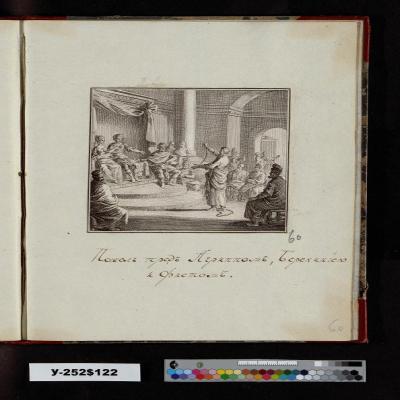 60
Павелъ предъ Агриппомъ, Вереникiею
и Фестомъ.
60
У-252$122